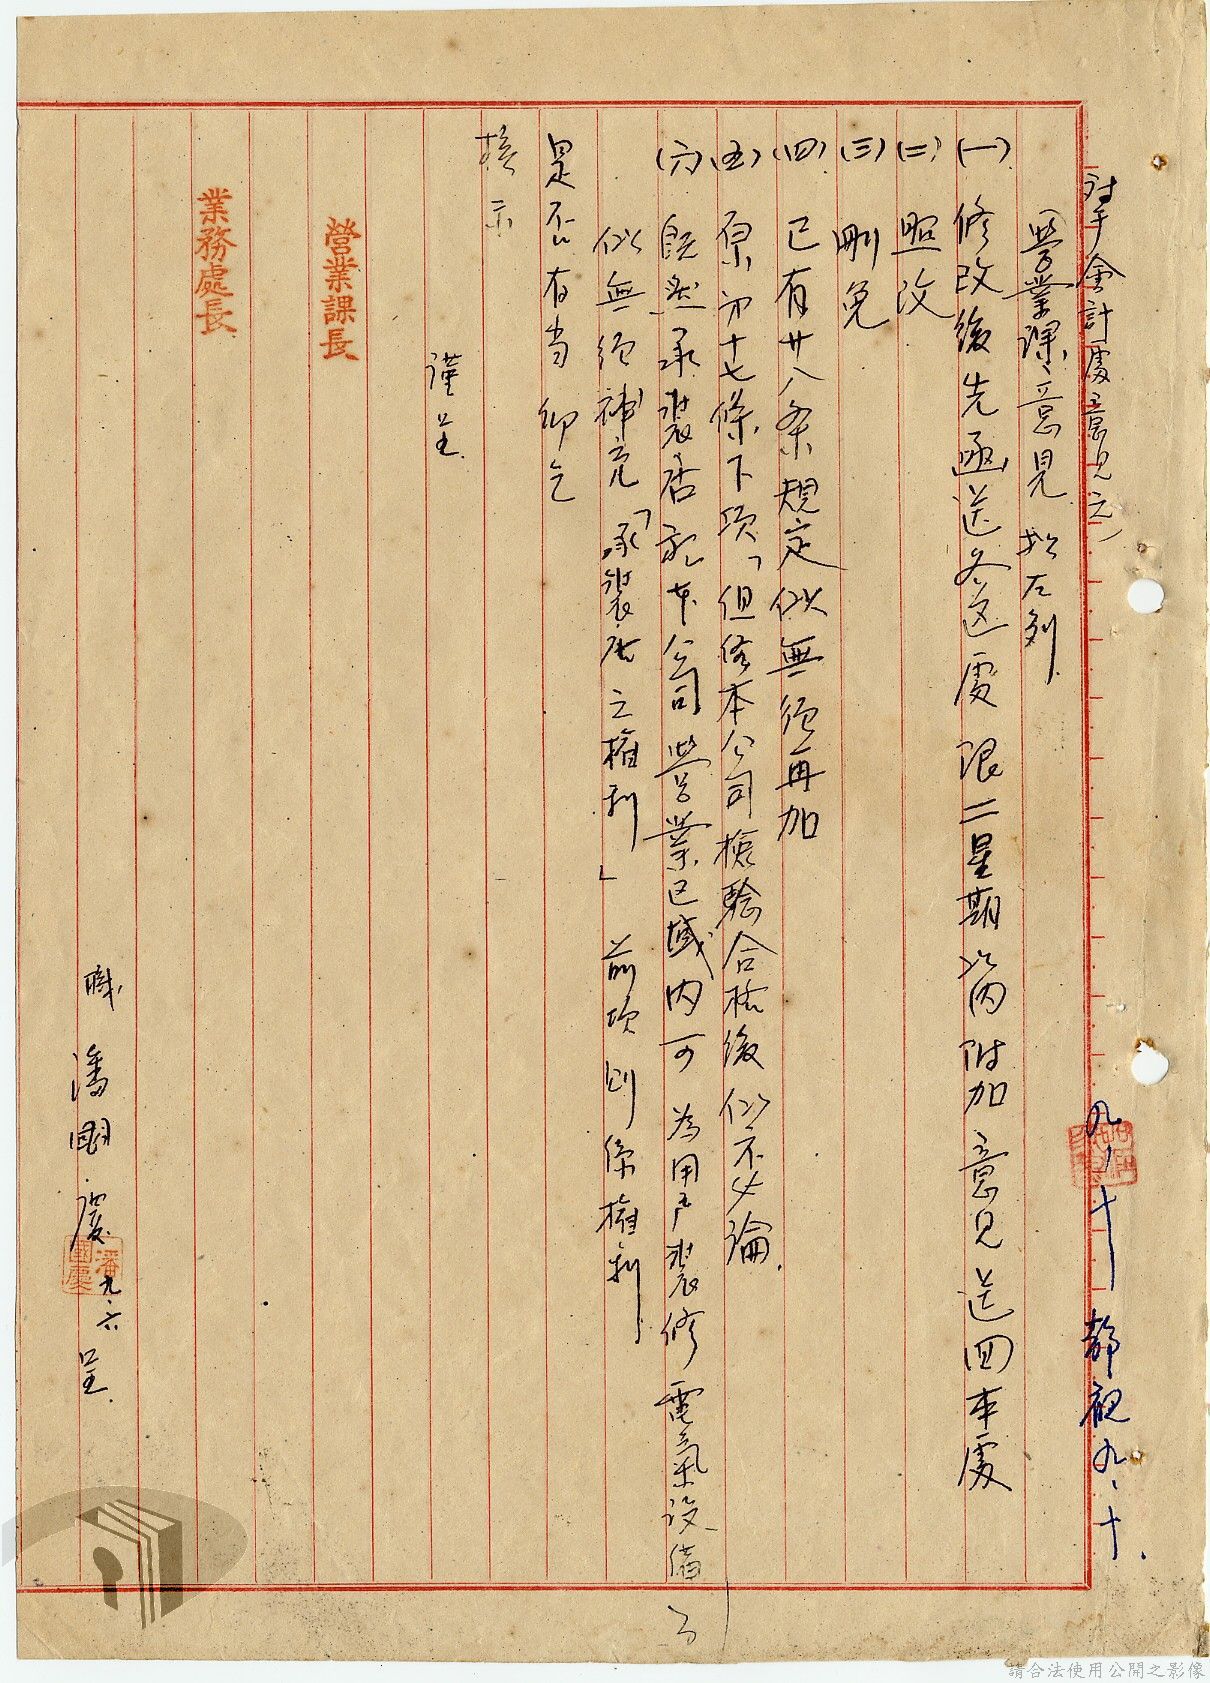 對于會計處意見之
營業課意見 如左列
(一) 修改後先函送各區處限二星期以內附加意見送回本處
(二) 照改
(三) 刪免
(四) 已有廿八条規定似無須再加
(五) 原第十七條下項「但俟本公司檢驗合格後似不必論.
(六) 既然承裝店記本公司營業区域內可為用戶裝修電氣設備
似無須補充「承裝店之權利」前項則係權利
是否有当 仰乞
核示
謹呈.
營業課長
業務處長
職 潘國慶 九.六 呈.
潘國慶
九、十 靜觀九、十.
請合法使用公開之影像